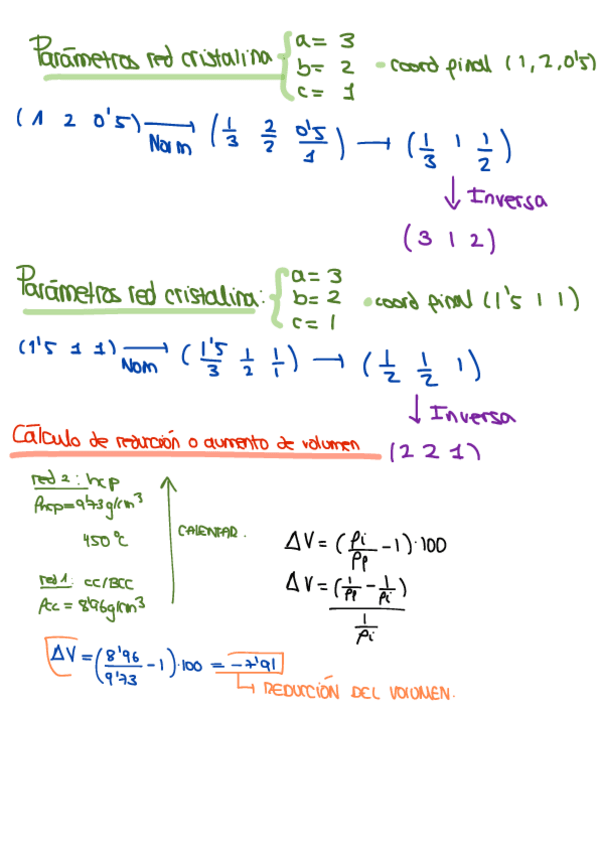 Parámetros red cristalina { a= 3 b= 2 c= 1 • coord final (1, 2, 0'5)
(1 2 0'5) → Norm (1/3 2/2 0'5/1) → (1/3 1 1/2)
↓ Inversa
(3 1 2)
Parámetros red cristalina: { a= 3 b= 2 c= 1 • coord final (1'5 1 1)
(1'5 1 1) → Nom (1'5/3 1/2 1/1) → (1/2 1/2 1)
↓ Inversa
(2 2 1)
Cálculo de reducción o aumento de volumen
red 2: hcp
ρhcp=9'73g/cm³
450°C
CALENTAR.
red 1: CC/BCC
ρcc = 8'96g/cm³
ΔV = (ρi/ρf - 1)·100
ΔV = (1/ρf - 1/ρi) / (1/ρi)
ΔV = (8'96/9'73 - 1)·100 = -7'91
↳ REDUCCIÓN DEL VOLUMEN.